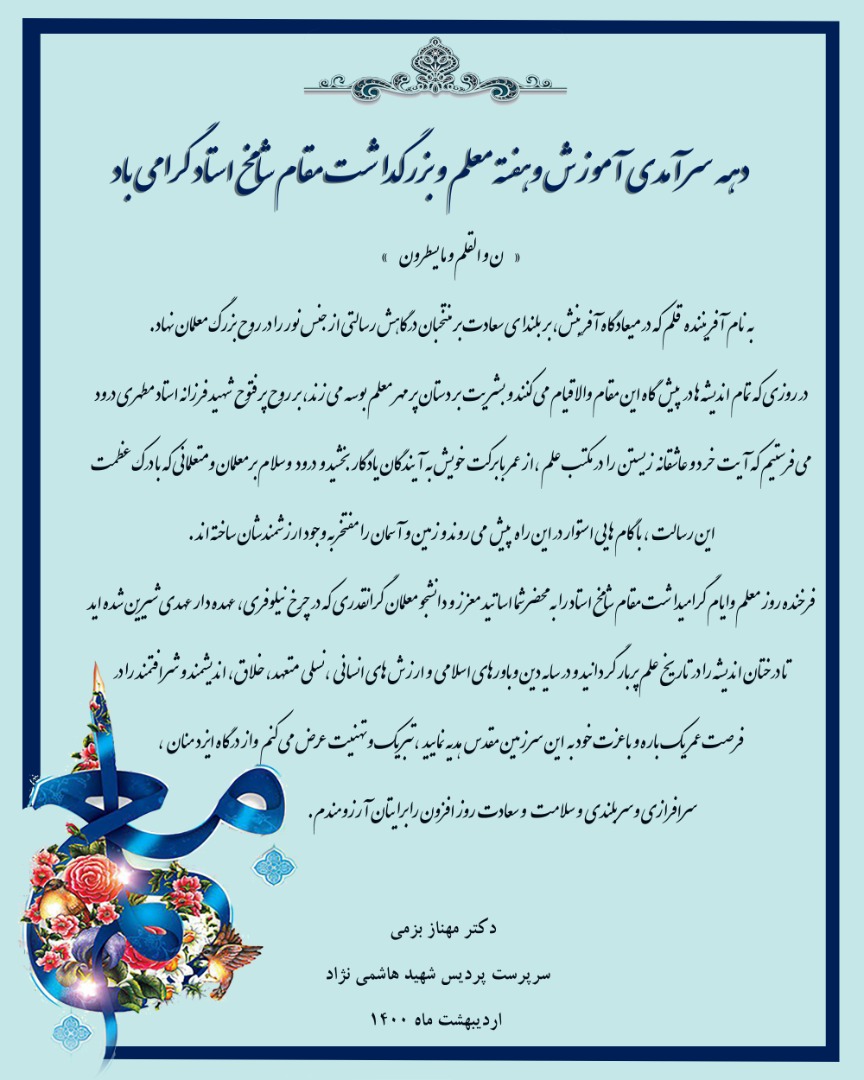 دهه سرآمدی آموزش و هفته معلم و بزرگداشت مقام شامخ استاد گرامی باد
« ن والقلم و ما یسطرون »
به نام آفریننده قلم که در میعادگاه آفرینش، بر بلندای سعادت بر منتخبان درگاهش رسالتی از جنس نور را در روح بزرگ معلمان نهاد.
در روزی که تمام اندیشه ها در پیش گاه این مقام والا قیام می کنند و بشریت بر دستان پر مهر معلم بوسه می زند، بر روح پر فتوح شهید فرزانه استاد مطهری درود
می فرستیم که آیت خرد و عاشقانه زیستن را در مکتب علم ، از عمر بابرکت خویش به آیندگان یادگار بخشید و درود وسلام بر معلمان و متعلمانی که با درک عظمت
این رسالت ، با گام هایی استوار در این راه پیش می روند و زمین و آسمان را مفتخر به وجود ارزشمندشان ساخته اند.
فرخنده روز معلم و ایام گرامیداشت مقام شامخ استاد را به محضر شما اساتید معزز و دانشجو معلمان گرانقدری که در چرخ نیلوفری، عهده دار عهدی شیرین شده اید
تا درختان اندیشه را در تاریخ علم پربار گردانید و در سایه دین و باورهای اسلامی و ارزش های انسانی ، نسلی متعهد، خلاق، اندیشمند و شرافتمند را در
فرصت عمر یک باره و باعزت خود به این سرزمین مقدس هدیه نمایید ، تبریک و تهنیت عرض می کنم و از درگاه ایزد منان ،
سرافرازی و سربلندی و سلامت و سعادت روز افزون را برایتان آرزومندم.
معلم
دکتر مهناز بزمی
سرپرست پردیس شهید هاشمی نژاد
اردیبهشت ماه ۱۴۰۰